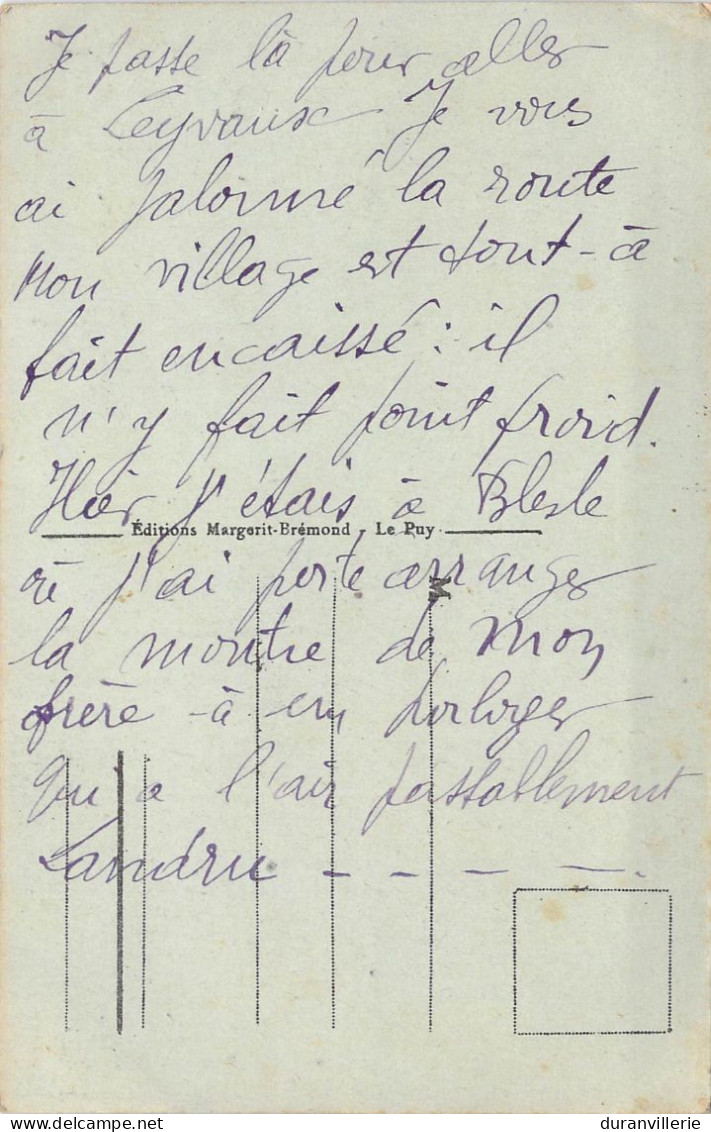 Je passe là pour aller
à Leyvaux Je vous
ai jalonné la route
Mon village est tout-à
fait encaissé : il
n'y fait point froid.
Hier j'étais à Blesle
Éditions Margerit-Brémond - Le Puy
où j'ai porté arranger
M
la montre de mon
frère - à un horloger
qui a l'air passablement
Landru - - - -.
duranvillerie